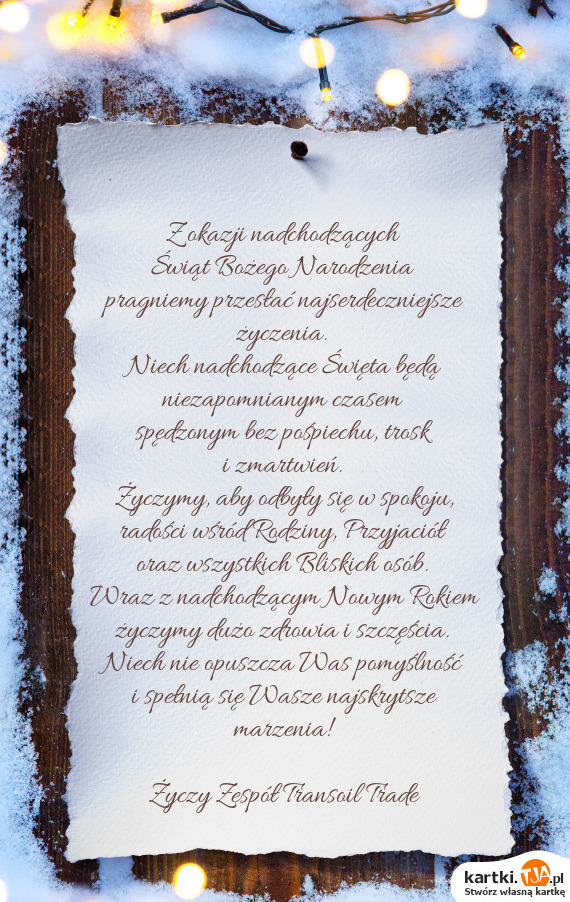 Z okazji nadchodzących
Świąt Bożego Narodzenia
pragniemy przesłać najserdeczniejsze
życzenia.
Niech nadchodzące Święta będą
niezapomnianym czasem
spędzonym bez pośpiechu, trosk
i zmartwień.
Życzymy, aby odbyły się w spokoju,
radości wśród Rodziny, Przyjaciół
oraz wszystkich Bliskich osób.
Wraz z nadchodzącym Nowym Rokiem
życzymy dużo zdrowia i szczęścia.
Niech nie opuszcza Was pomyślność
i spełnią się Wasze najskrytsze
marzenia!
Życzy Zespół Transoil Trade
kartki.TJA.pl
Stwórz własną kartkę